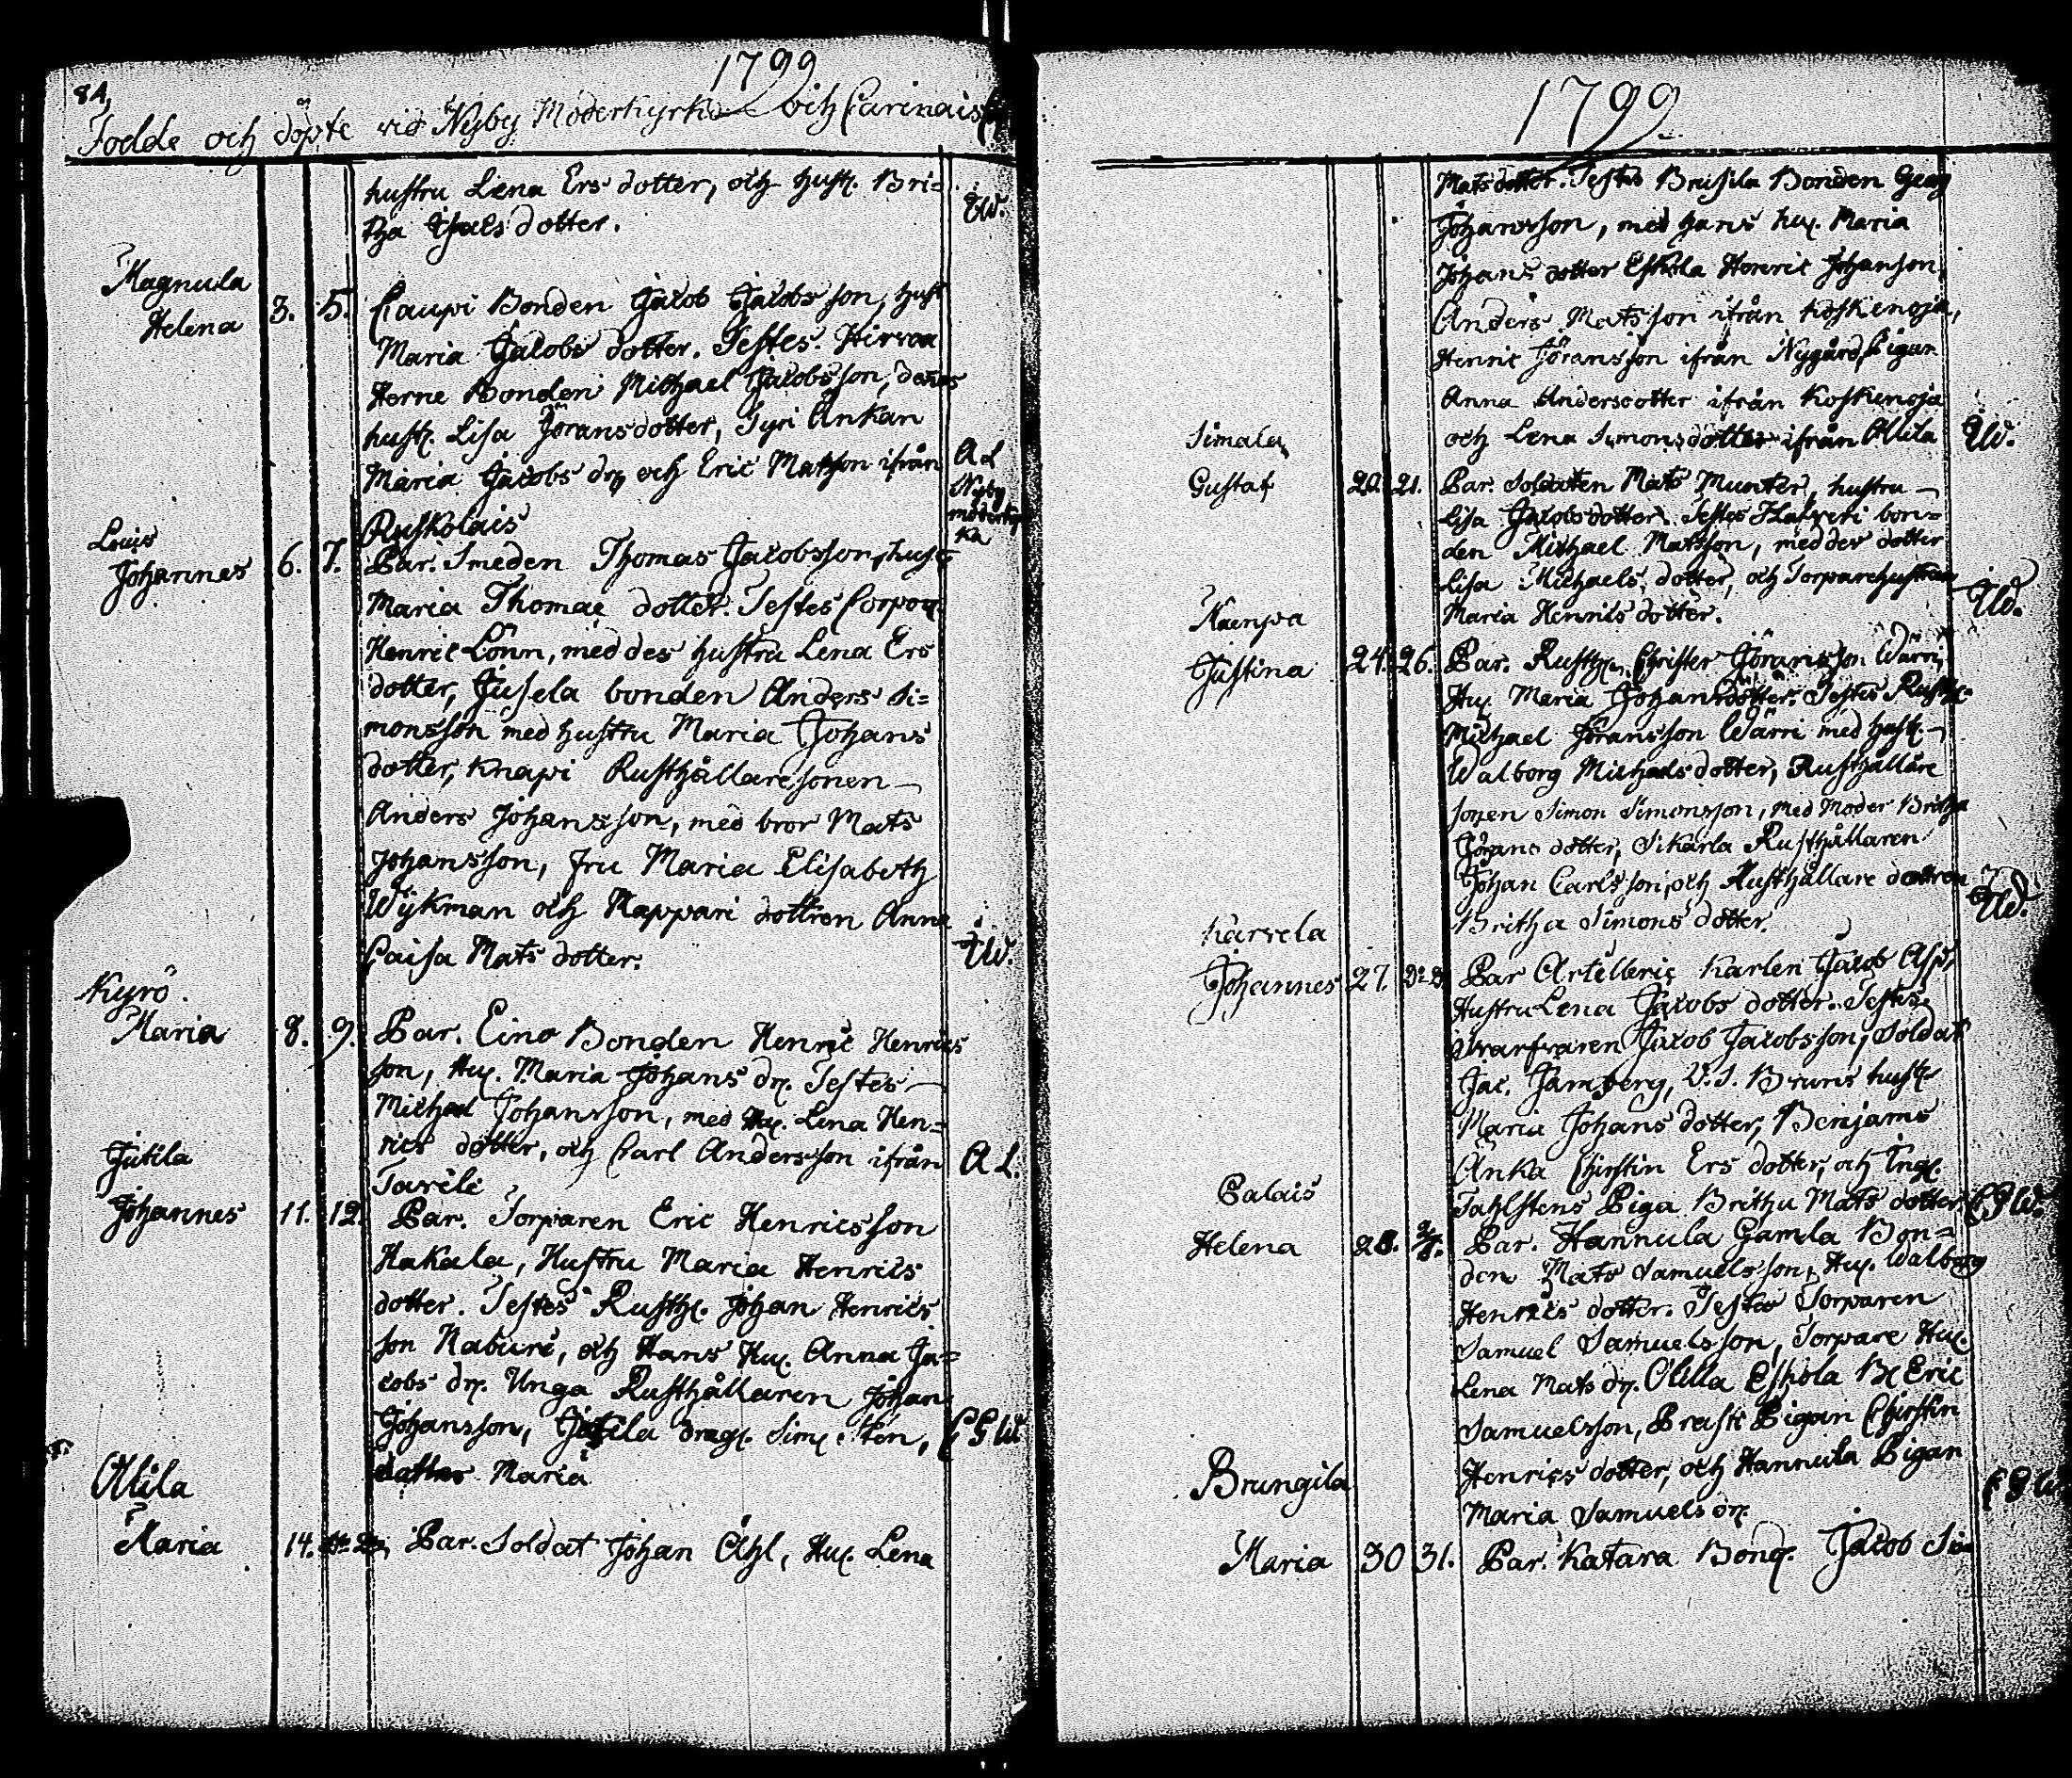 84,
1799
Födde och döpte vid Nyby Moderkyrka och Carinais
hustru Lena Ers dotter, och hust. Bri=
tha dotter.
W.
Magnula
Helena 3. 5. Caupi Bonden Jacob Jacobs son, hust
Maria Jacobs dotter. Testes. Hirvoa
Herne Bonden Michael Jacobsson, dess
hust. Lisa Jöransdotter, Gyri Ankan
Maria Jacobs dr. och Eric Matsson ifrån
Ruskolais
A L
Nyby
moderky
ka
Louis
Johannes 6. 7. Par. Smeden Thomas Jacobsson, hust
Maria Thomae dotter. Testes Corpor.
Henric Lönn, med des hustru Lena Ers
dotter, Jusela bonden Anders Si=
monsson med hustru Maria Johans
dotter, Knapi Rusthållare sonen
Anders Johansson, med bror Mats
Johansson, fru Maria Elisabeth
Wijkman och Nappari dottren Anna
Caisa Mats dotter.
W.
Kyrö.
Maria 8. 9. Par. Eino Bonden Henric Henrics
son, Hu. Maria Johans dr. Testes
Michael Johansson, med Hu. Lena Hen=
rics dotter, och Carl Andersson ifrån
Tavile
A L.
Jutila
Johannes 11. 12. Par. Torparen Eric Henricsson
Hakala, Hustru Maria Henrics
dotter. Testes Rusth. Johan Henrics
son Naburi, och Hans Hu. Anna Ja=
cobs dr. Unga Rusthållaren Johan
Johansson, Jutila drag.
Maria
C G W.
Ollila
Maria 14. Par. Soldat Johan Åhl, Hu. Lena
1799
Mats dotter. Testes Brusila Bonden Georg
Johansson, med hans hu. Maria
Johans dotter Eskola Henric Johanson,
Anders Matsson ifrån Koskenoja,
Henric Jöransson ifrån Nygård, Pigan
Anna Andersdotter ifrån Koskenoja
och Lena Simons dotter ifrån Ollila
W.
Simala
Gustaf 20. 21. Par. Soldaten Mats Munter, hustru
Lisa Jacobs dotter. Testes Hafveri bon=
den Michael Matsson, med des dotter
Lisa Michaels dotter, och Torparehustrun
Maria Henrics dotter.
W.
Kaempa
Justina 24. 26. Par. Rusth. Christer Jöransson Wärri,
Hu. Maria Johans dotter. Testes Rusth.
Michael Jöransson Wärri med hust.
Walborg Michaels dotter, Rusthållare
sonen Simon Simonsson, med Moder Britha
Jörans dotter, Sikarla Rusthållaren
Johan Carlsson, och Rusthållare dottren
Britha Simons dotter.
W.
Karvela
Johannes 27. Par Artelleric Karlen Jacob Asp,
Hustru Lena Jacobs dotter. Testes
Svarfvaren Jacob Jacobsson, Soldat
Jac. Jamberg, V. S. Bruns hust.
Maria Johans dotter, Benjams
Änka Chirstin Ers dotter, och Ing.
Tahlstens Piga Britha Mats dotter
C G W.
Palais
Helena 28. Par. Hannula Gamla Bon=
den Mats Samuelsson, Hu. Walborg
Henrics dotter. Testes Torparen
Samuel Samuelsson, Torpare Hu.
Lena Mats dr. Ollila Eskola B. Eric
Samuelsson, Präst Pigan Chirstin
Henrics dotter, och Hannula Pigan
Maria Samuels dr.
C G W.
Brungila
Maria 30 31. Par. Katara Bond. Jacob Si